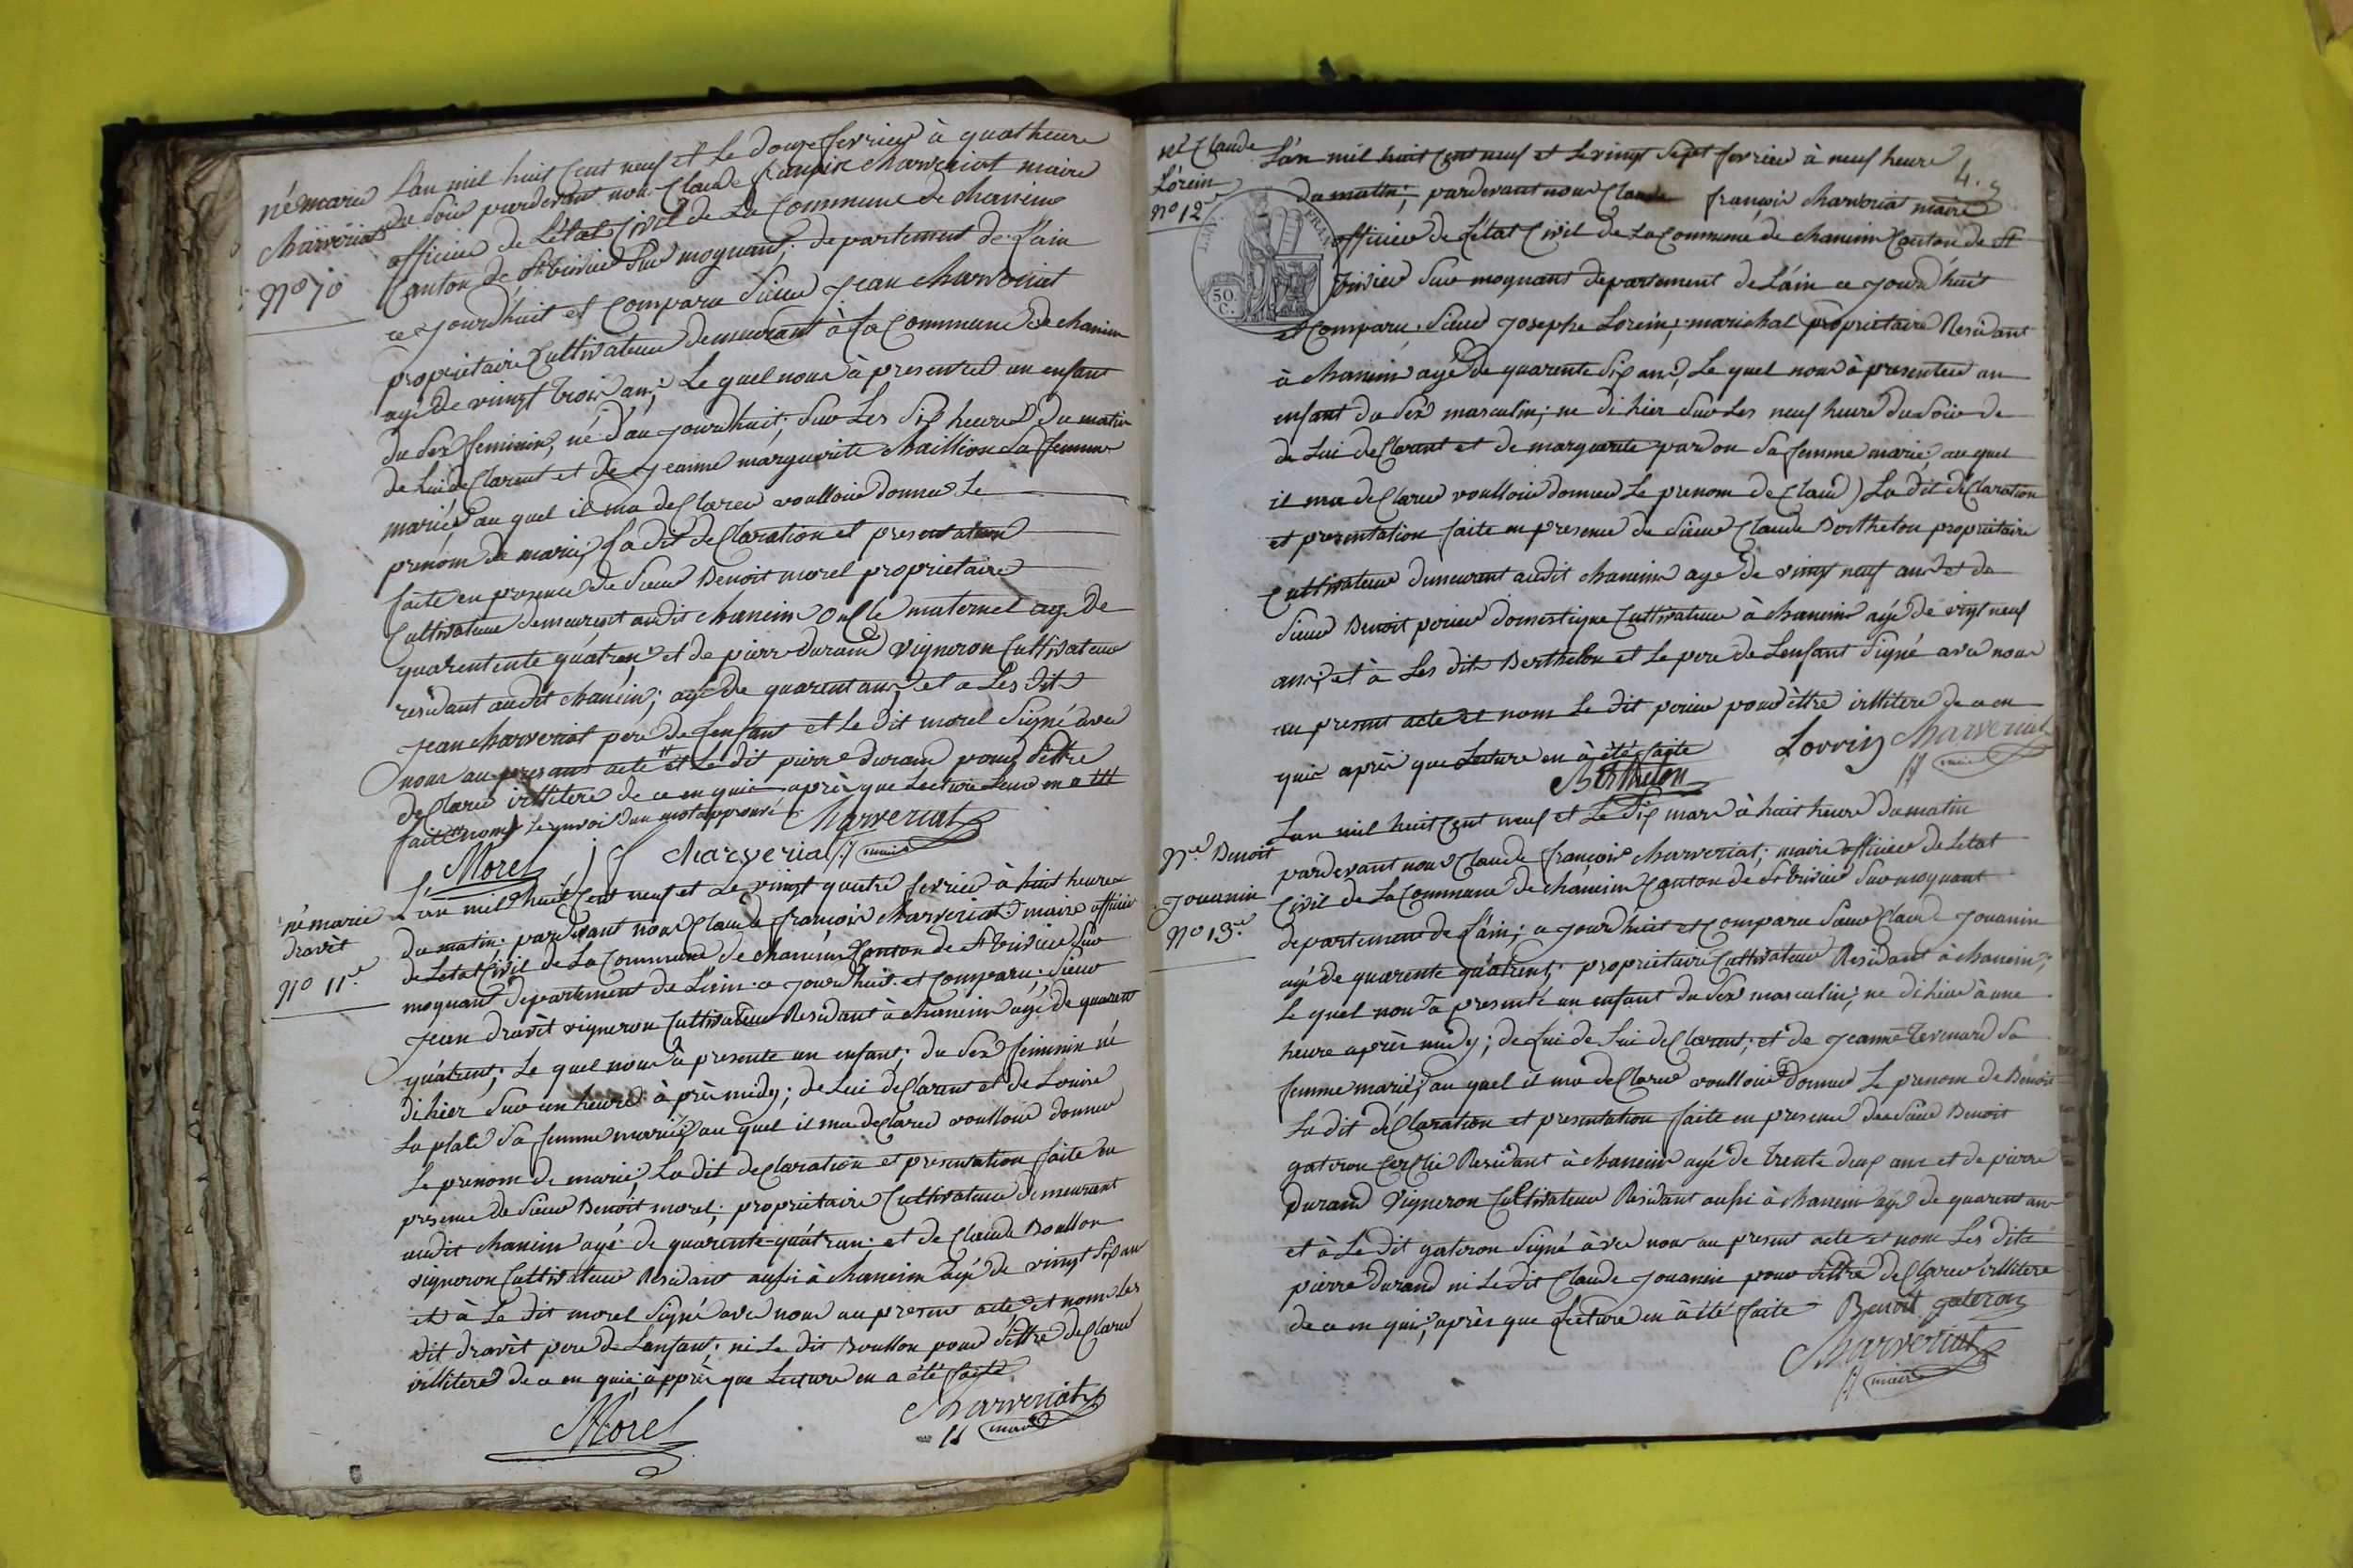 né marie
Charveriat
N° 10
L'an mil huit cent neuf et Le douze fevrier à quat heure
du soir pardevant nou Claude françoix charveriat maire
officier de L'état Civil de La Commune de chaneins
Canton de St trivier sur moignant; departement de L'ain
ce jourdhuit et Comparu sieur Jean charveriat
propriétaire Cultivateur demeurant à La Commune de chanein
agé de vingt trois an; Le quel nous à presentée un enfant
du sex feminin, né d'au jourdhuit; sur Les six heures du matin
de Lui de Clarent et de Jeanne marguerite Chaillion sa femme
mariés au quel il ma deClarer voulloir donner Le
prenom de marie, La dit deClaration et presentation
faite en presence de sieur Benoit morel propriétaire
Cultivateur demeurent audit chanein oncle maternel agé de
quarentente quátren; et de pierre durand vigneron Cultivateur
résidant audit chanein; agé de quarent ans et a Les dit
Jean charveriat pere de Lenfant et Le dit morel signé avec
nous au presant acte et Le dit pierre durand pour s'ettre
deClarer illitere de ce en quis après que Lecture Leur en a été
faite nom Le renvoi d'un mot approuvé Charveriat
Morel J f charveriat maire
né marie
dravèt
N° 11e
L'an mil huit Cent neuf et Le vingt quatre fevrier à huit heure
du matin pardevant nous Claude françois charveriat maire officier
de Letat Civil de La Commune de chanein Canton de St trivier sur
moignant departement de L'ain ce jourdhuit et Comparu; sieur
Jean dravèt vigneron Cultivateur Residant à chanein agé de quarent
quátrent; Le quel nous à presente un enfant; du sex feminin né
di hier sur un heure à près midy; de Lui deClarent et de Louise
La plate sa femme mariée au quel il ma deClarer voulloir donner
Le prenom de marie; La dit deClaration et presentation faite en
presence de sieur Benoit morel; propriétaire Cultivateur demeurant
audit chanein agé de quarente-quátran; et de Claude Boullon
vigneron Cultivateur Residant aussi à chanein agé de vingt six an
et à Le dit morel signé avec nous au presens acte et nom Les
dit dravèt pere de Lenfant; ni Le dit Boullon pour s'ettre deClarer
illitere de ce en quis; àpprès que Lecture en a été faite
Morel
Charveriat
maire
né Claude
Lorein
N° 12e
4.
L'an mil huit Cent neuf et Le vingt sept fevrier à neuf heure
du matin; pardevant nous Claude françois charveriat maire
officier de L'état Civil de La Commune de chanein Canton de St
trivier sur moignans departement de L'ain ce jourd'huit
et Comparu; sieur Josephe Lorein; marichal propriétaire Residant
à chanein agé de quarente six ans, Le quel nous à presentere un
enfant du sex masculin; ne di hier sur Les neuf heure du soir de
de Lui deClarent et de marguerite pardon sa femme marié; au quel
il ma deClarer voulloir donner Le prenom de Claud) La dit déClaration
et presentation faite en presence de sieur Claude Berthelon propriétaire
Cultivateur demeurant audit chanein agé de vingt neuf ans et de
sieur Benoit perier domestique Cultivateur à chanein agé de vingt neuf
ans; et à Les dit Berthelon et Le pere de Lenfant signé avec nous
au present acte et nom Le dit perier pour s'ettre illitere de ce en
quis après que Lecture en à été faite Lorrin Charveriat
Berthelon maire
Né Benoit
Jouanin
N° 13e
L'an mil huit Cent neuf et Le dix mars à huit heure du matin
pardevant nous Claude françois charveriat; maire officier de Létat
Civil de La Commune de chánein Canton de St trivier sur moignant
departement de L'ain; ce jourdhuit et Comparu sieur Claude Jouanin
agé de quarente quátrent; propriétaire Cultivateur Residant à chanein;
Le quel nous à presenté un enfant du sex masculin; ne di hier à une
heure après midy; de Lui de Lui deClarent; et de Jeanne Tevenard sa
femme mariés; au quel il ma deClarer voulloir donner Le prenom de Benoit
La dit déClaration et presentation faite en presence de sieur Benoit
gateron Residant à chanein agé de trente deux ans et de pierre
durand vigneron Cultivateur Residant aussi à chanein agé de quarent an
et à Le dit gateron signé àvec nous au present acte et nom Les dit
pierre durand ni Le dit Claude Jouanin pour s'ettre deClarer illitere
de ce en quis; après que Lecture en à été faite Benoit gateron
Charveriat
maire